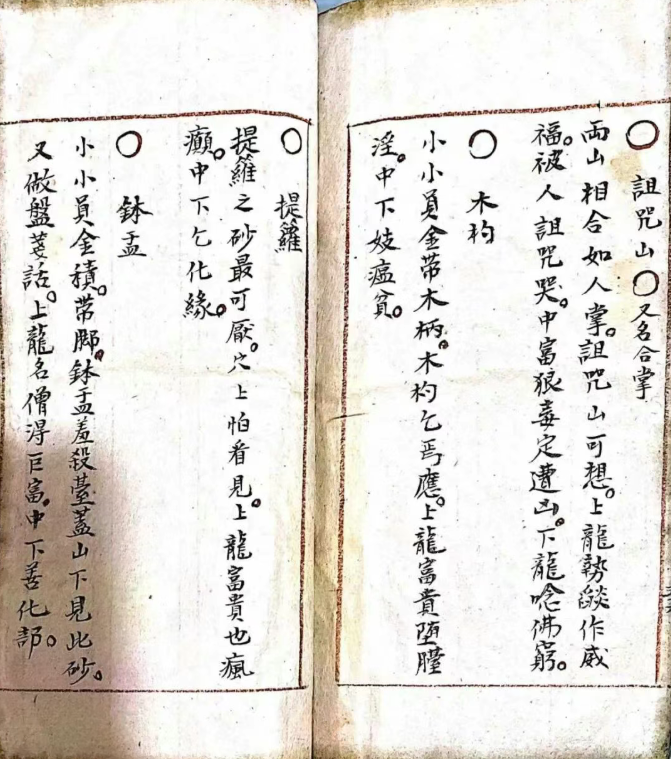 〇詛咒山〇又名合掌
兩山相合如人掌。詛咒山可想。上龍勢燄作威
福。被人詛咒哭。中富狠毒定遭凶。下龍唸佛窮。
〇木杓
小小員金帶木柄。木杓乞丐應。上龍富貴墮腥
淫。中下妓瘟貧。
〇提籮
提籮之砂最可厭。穴上怕看見。上龍富貴也瘋
癲。中下乞化緣。
〇鉢盂
小小員金積。帶脚。鉢盂羞殺墓蓋山下見此砂。
又做盤荖話。上龍名僧得巨富。中下善化部。